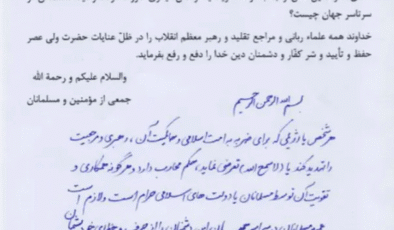 سرتاسر جهان چیست؟
خداوند همه علماء ربانی و مراجع تقلید و رهبر معظم انقلاب را در ظلّ عنایات حضرت ولی عصر
حفظ و تأیید و شر کفّار و دشمنان دین خدا را دفع و رفع بفرماید.
والسلام علیکم و رحمة الله
جمعی از مؤمنین و مسلمانان
بسم الله الرحمن الرحیم
هر شخص یا رژیمی که برای ضربه به امت اسلامی و حاکمیت آن، رهبری و مرجعیت
را تهدید کند یا (لا سمح الله) تعرضی نماید، حکم محارب دارد و هرگونه همکاری و
تقویت آن توسط مسلمانان یا دولت های اسلامی حرام است و لازم است